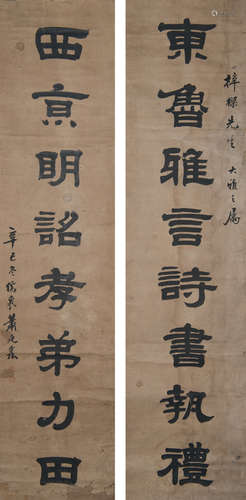 東魯雅言詩書執禮
梓樑先生大雅之屬
西京明詔孝弟力田
辛巳冬